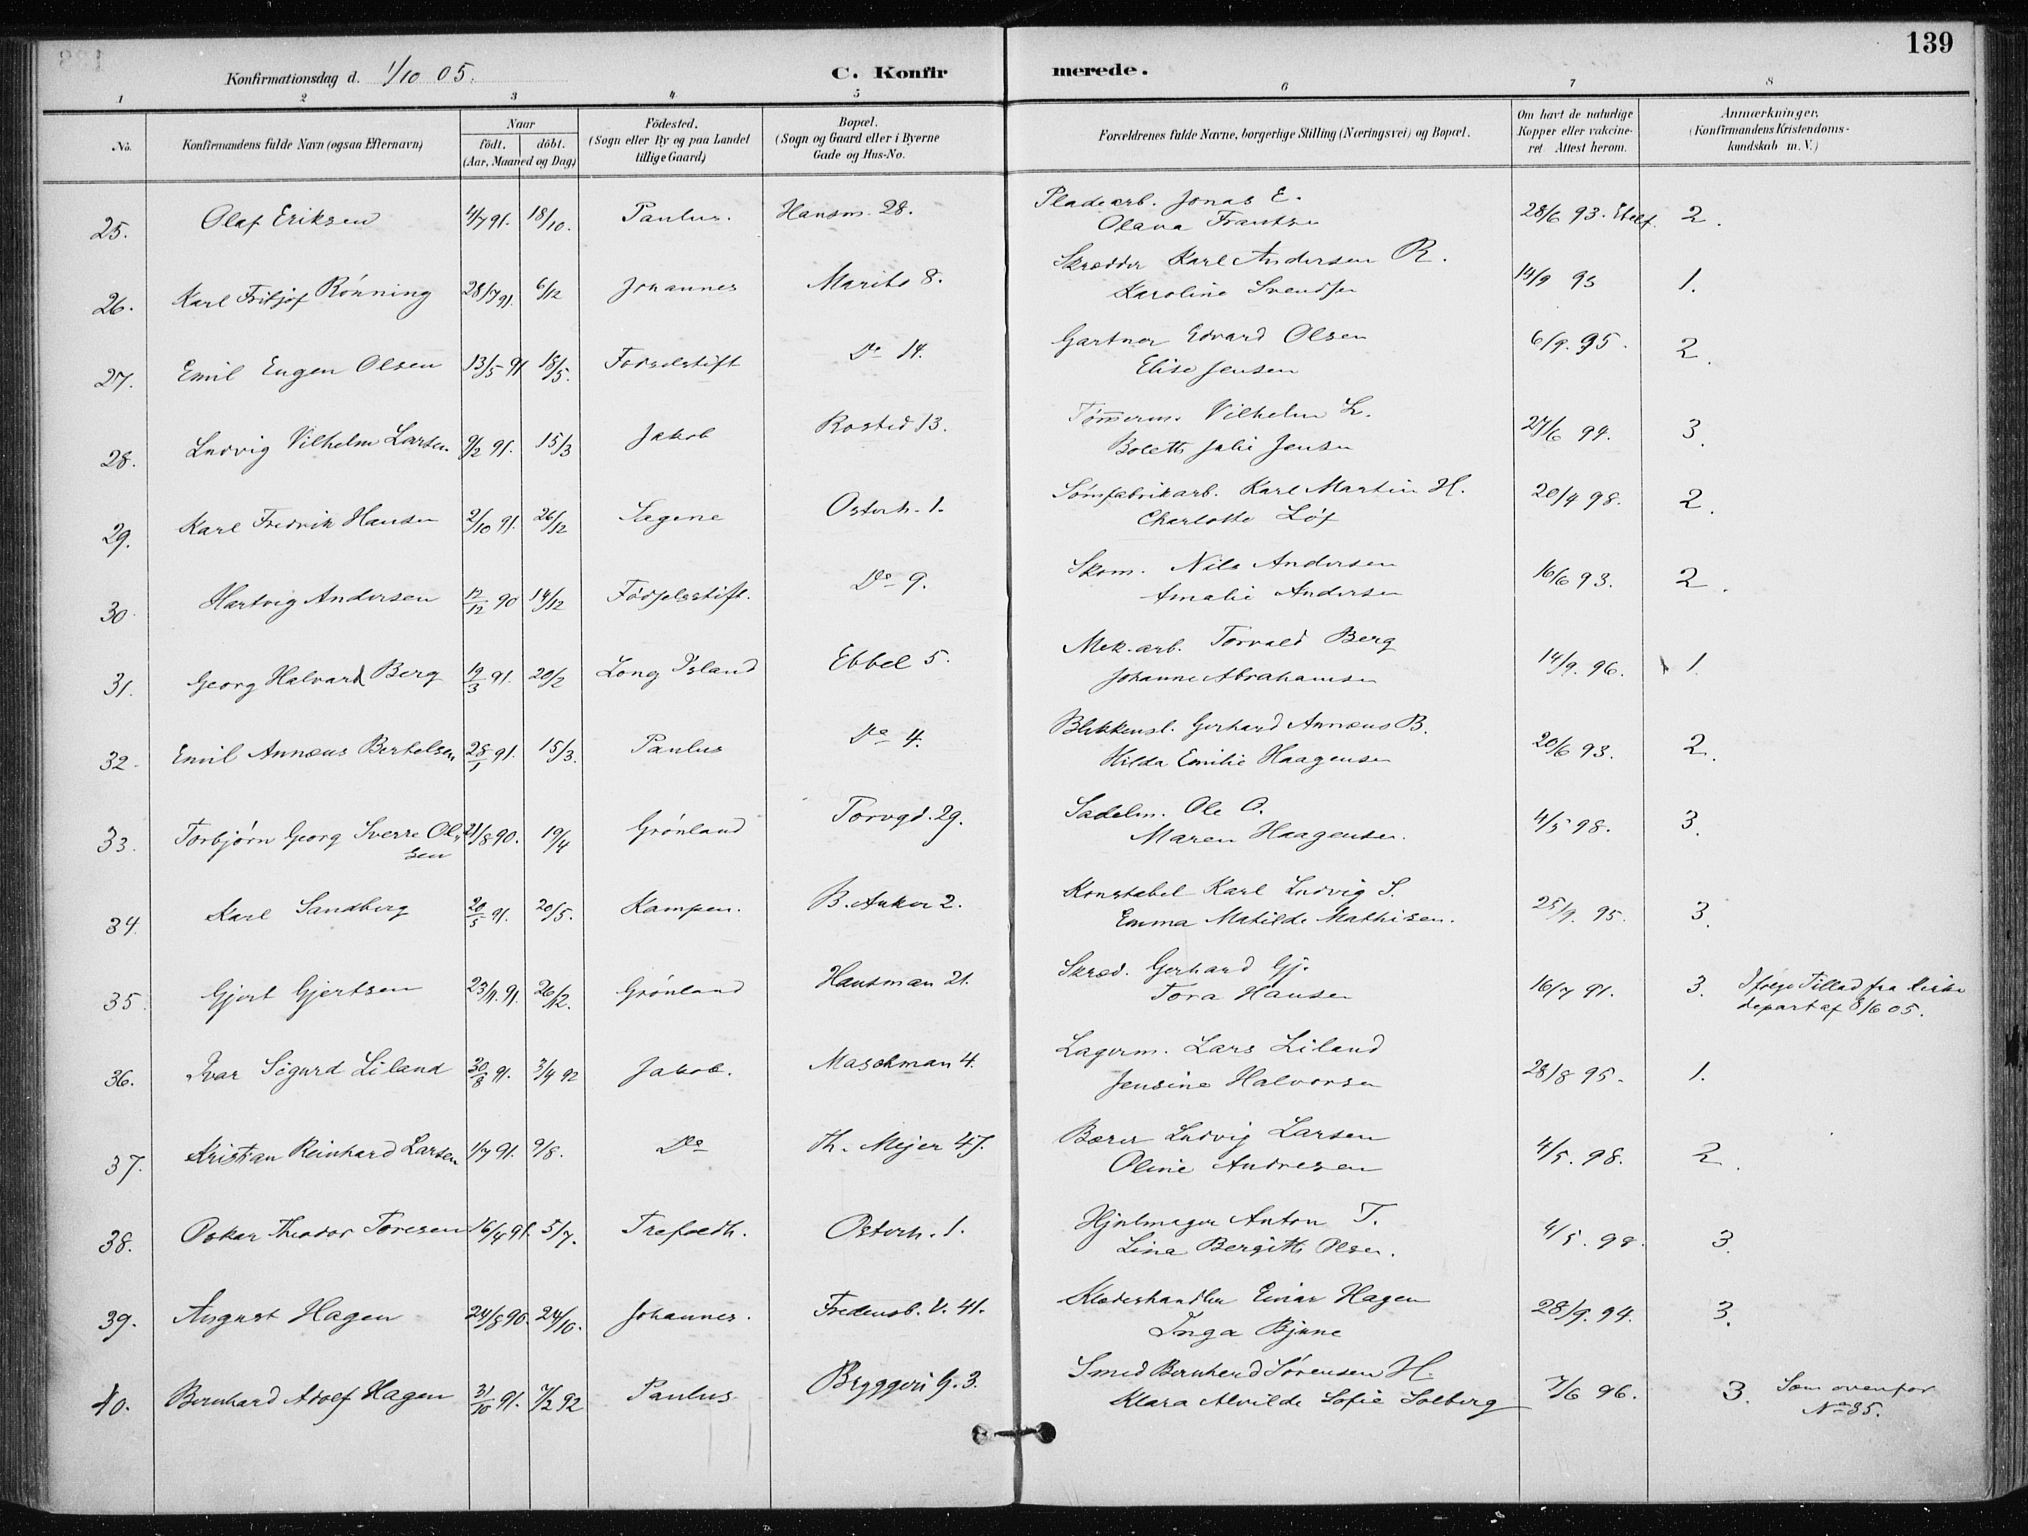 139
Konfirmationsdag d. 1/10 05.
C. Konfirmerede.
1 2 3 4 5 6 7 8
No.
Konfirmandens fulde Navn (ogsaa Efternavn)
Naar
födt. döbt.
(Aar, Maaned og Dag)
Födested.
(Sogn eller By og paa Landet
tillige Gaard)
Bopæl.
(Sogn og Gaard eller i Byerne
Gade og Hus-No.
Forældrenes fulde Navne, borgerlige Stilling (Næringsvei) og Bopæl.
Om havt de naturlige
Kopper eller vakcine-
ret Attest herom.
Anmærkninger.
(Konfirmandens Kristendoms-
kundskab m. V.)
25. Olaf Eriksen 4/7 91. 18/10. Paulus. Hausm. 28. Pladearb. Jonas E. 28/6 93. 2.
Olava Frantsen
26. Karl Fritjof Rönning 28/7 91. 6/12 Johannes Marito 8. Skrædder Karl Andersen R. 14/9 93 1.
Karoline Svendsen
27. Emil Eugen Olsen 13/5 91 18/5. Fødselsstift Do 14. Gartner Edvard Olsen 6/9. 95. 2.
Elise Jensen
28. Ludvig Vilhelm Larsen 9/2 91. 15/3 Jakob Rosted 13. Tømmerm. Vilhelm L. 27/6 94. 3.
Bolette Julie Jensen
29. Karl Fredrik Hansen 2/10 91. 26/12 Sagene Osterh. 1. Sømfabrikarb. Karl Martin H. 20/4 98. 2.
Charlotte Löf
30. Hartvig Andersen 12/12 90 14/12 Födselsstift. Do 9. Skom. Nils Andersen 16/6 93. 2.
Amalie Andersen
31. Georg Halvard Berg 19/3 91. 20/2 Long Island Ebbel 5. Mek. arb. Torvald Berg 14/9. 96. 1.
Johanne Abrahamsen
32. Emil Annæus Bertelsen 28/1 91. 15/3. Paulus Do 4. Blikkensl. Gerhard Annæus B. 20/6 93. 2.
Hilda Emilie Haagensen
33. Torbjørn Georg Sverre Ol- 21/8 90. 19/4 Grönland Torvgd. 29. Sadelm. Ole O. 4/5 98. 3.
sen Maren Haagensen.
34. Karl Sandberg 20/5 91. 20/5. Kampen. B. Anker 2. Konstabel Karl Ludvig S. 25/9. 95. 3.
Emma Matilde Mathisen.
35. Gjert Gjertsen 23/9. 91. 26/12. Grönland Hausman 21. Skræd. Gerhard Gj. 16/7 91. 3. Ifølge Tillad fra Kirke
Tora Hansen depart af 8/6 05.
36. Ivar Sigurd Liland 30/8 91. 3/4 92 Jakob. Maschman 4. Lagerm. Lars Liland 28/8 95. 1.
Jensine Halvorsen
37. Kristian Reinhard Larsen 1/7 91. 9/8. Do Th. Mejer 47. Bærer Ludvig Larsen 4/5. 98. 2.
Oline Andresen
38. Oskar Theodor Toresen 16/4 91. 5/7. Trefoldh. Osterh. 1. Hjulmager Anton T. 4/5. 98. 3.
Lina Bergitte Olsen.
39. August Hagen 24/8 90. 24/10. Johannes. Fredensb. V. 41. Klædeshandler Einar Hagen 28/9. 94. 3.
Inga Bjune
40. Bernhard Adolf Hagen 31/10 91. 7/2 92 Paulus Bryggeri G. 3. Smed Bernhard Sörensen H. 7/6 96. 3. Som ovenfor
Klara Alvilde Sofie Solberg No 35.